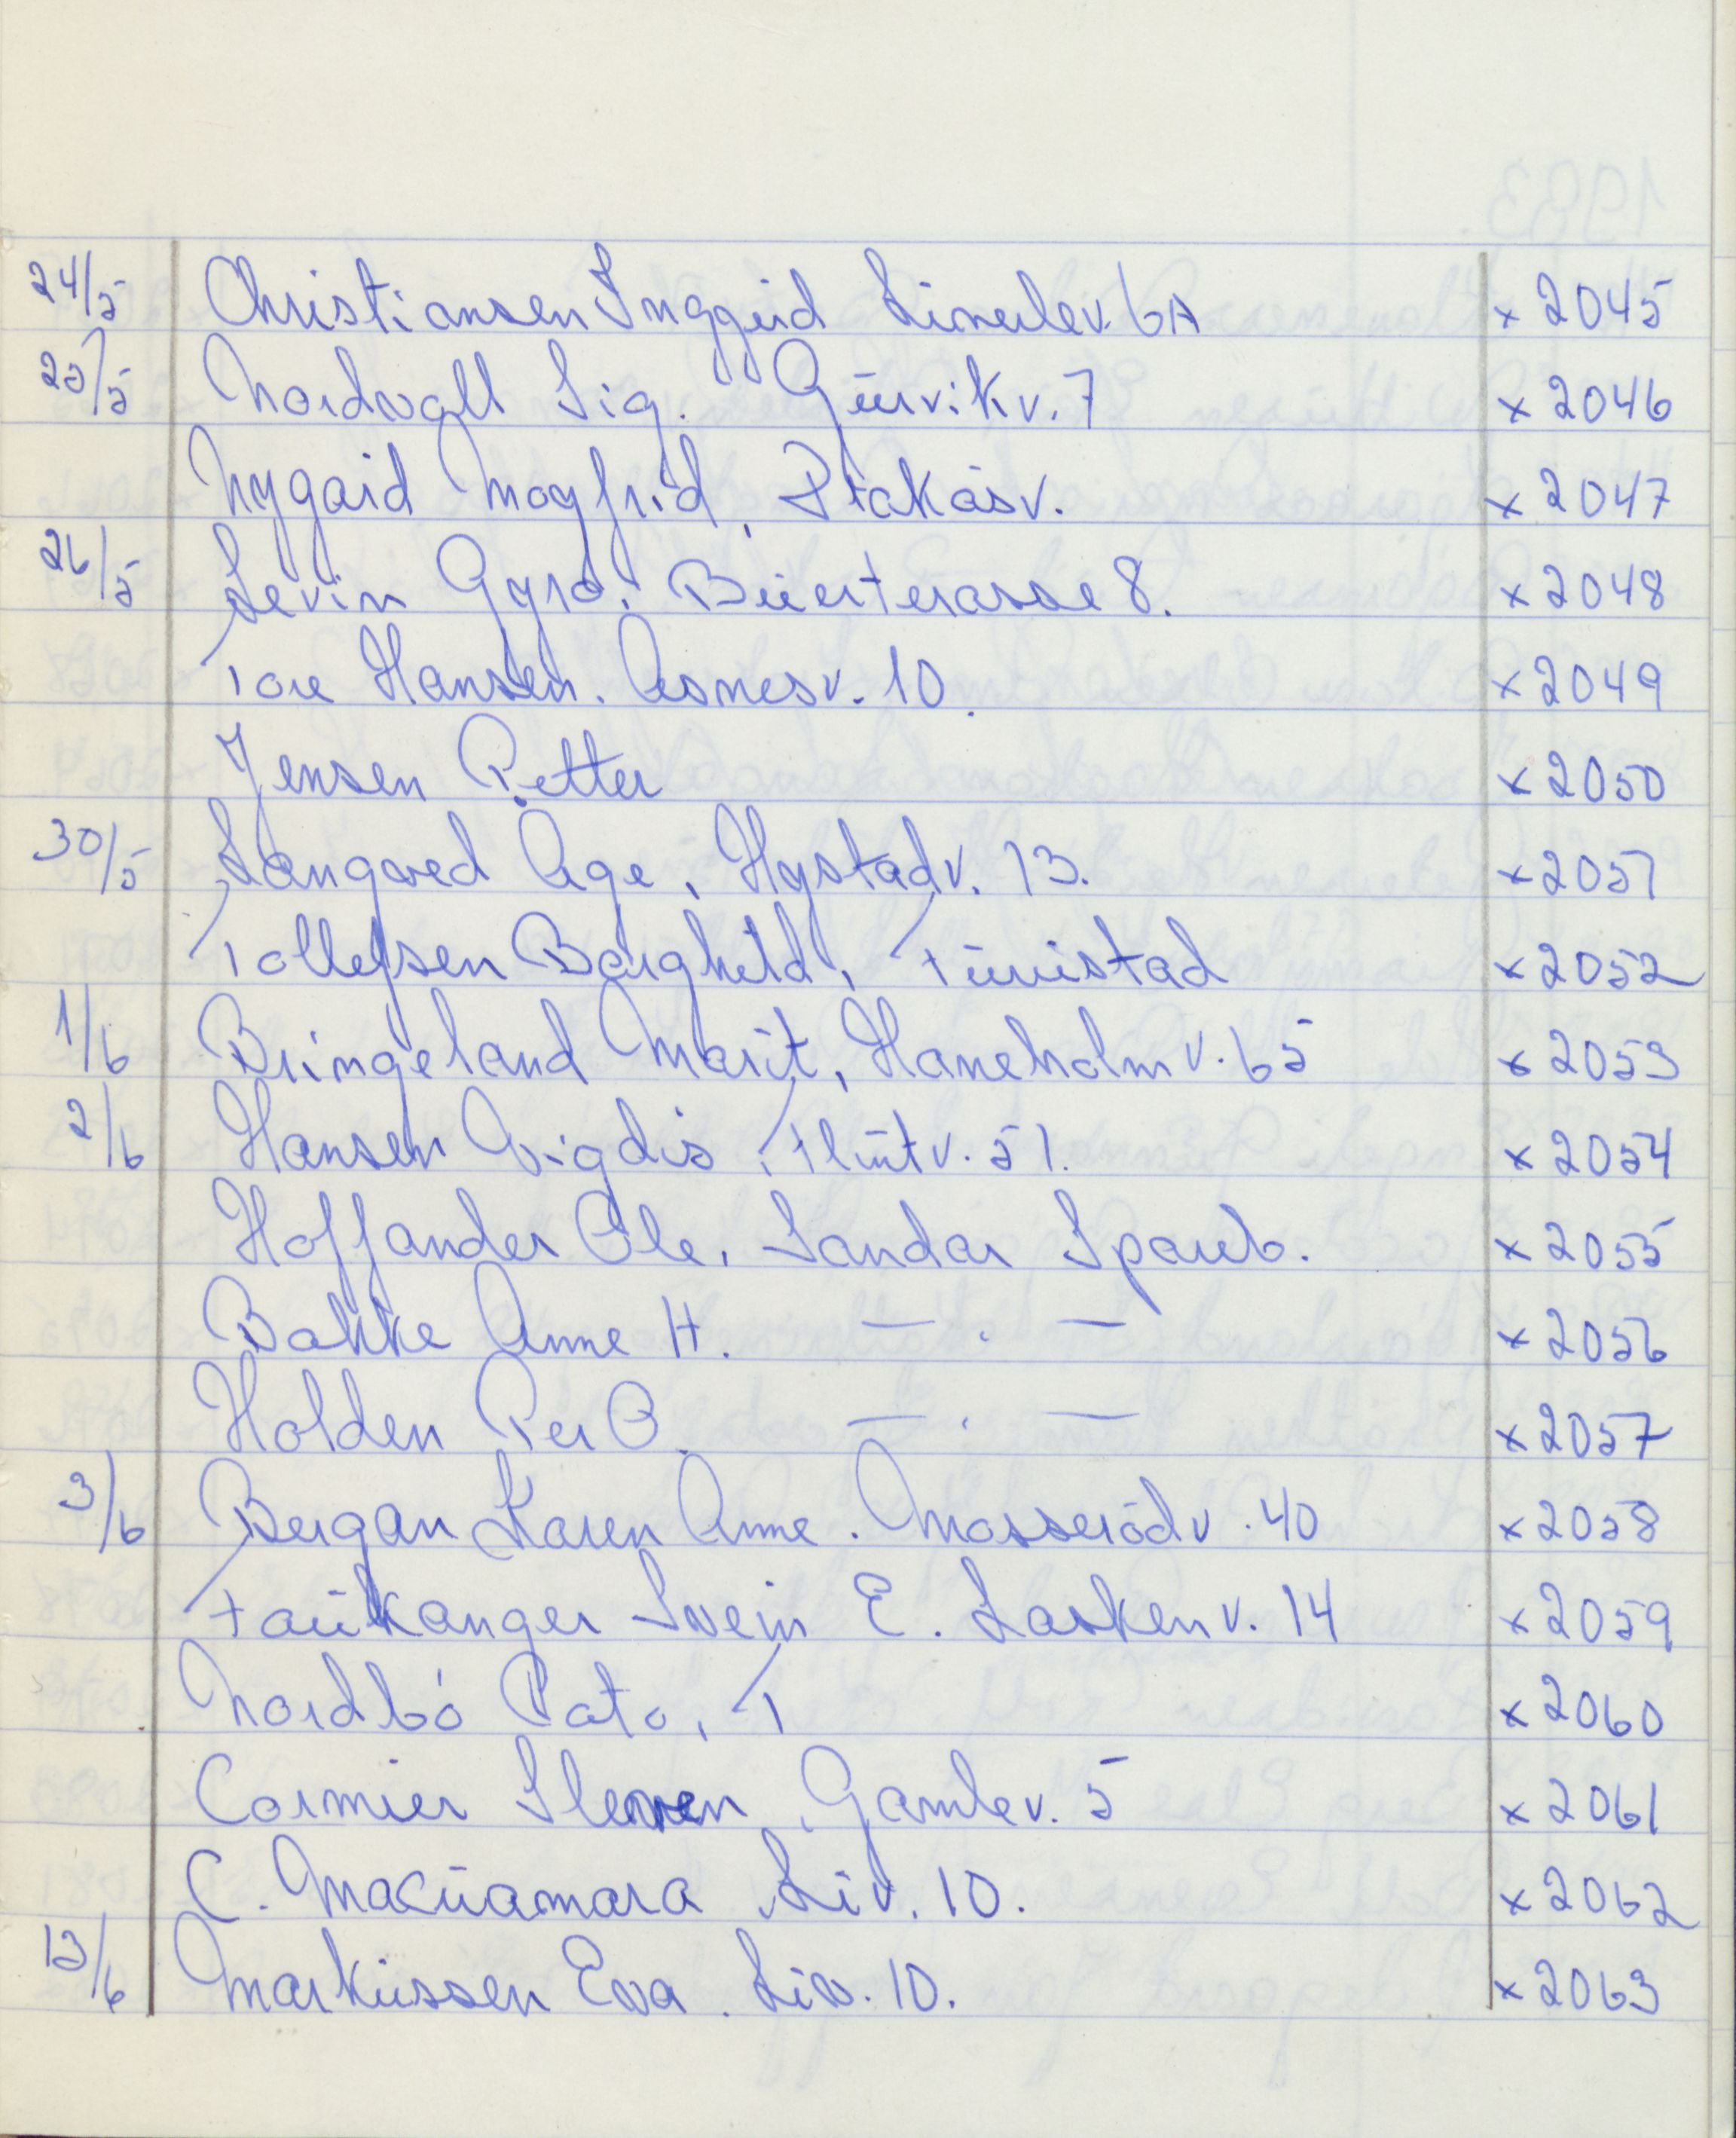 24/5 Christiansen Inggerd Linerlev. 6A x 2045
25/5 Nordvall Sig. Gürvikv. 7 x 2046
Nygård Moyfrid, Plakåsv. x 2047
26/5 Levin Gyro. Büerterasse 8. x 2048
Tore Hansen. Åsnesv. 10. x 2049
Jensen Petter x 2050
30/5 Langved Åge, Hystadv. 13. x 2051
Tollefsen Borghild, Fürustad x 2052
1/6 Bringeland Marit, Haneholmv. 65 x 2053
2/6 Hansen Vigdis, Flintv. 51. x 2054
Hoffander Ole, Sandar Spareb. x 2055
Bakke Anne H. — . — x 2056
Holden Per O. — . — x 2057
3/6 Bergan Karen Anne. Mosserødv. 40 x 2058
Faükanger Svein E. Laskenv. 14 x 2059
Nordbø Pato, T x 2060
Cormier Steven, Gamlev. 5 x 2061
C. Macüamara Liv. 10. x 2062
13/6 Marküssen Eva. Liv. 10. x 2063